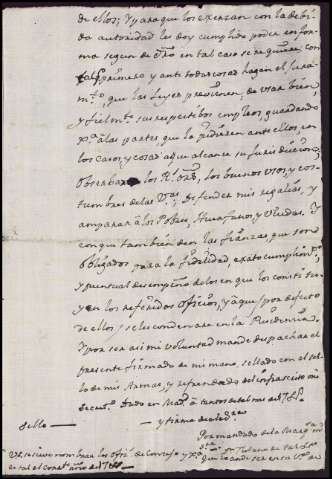 de ellos; y para que los exerzan con la debi-
da autoridad les doy cumplido poder en for-
ma segun de Dro en tal caso se requiere, con
tal qe primero y ante todas cosas hagan el Jura-
mto, que las Leyes previenen, de usar bien,
y fielmte sus respectibos empleos, guardando
Xa a las partes que la pidieren ante ellos, en
los casos, y cosas a que alcance su jurisdiccion,
Observando los Rs Ords, los buenos usos, y cos-
tumbres de las Vas, defender mis regalias, y
amparar a los Pobres, Huerfanos, y Viudas. Y
con que tambien den las fianzas, que son
Obligados para la fidelidad exato cumplimto,
y puntual desempeño de los en que los constituio
y en los referidos oficios, y a qe por defecto
de ellos se les condenare en la Residencia.
Y por ser asi mi voluntad mande despachar el
presente firmado de mi mano, sellado con el sello
de mis Armas, y refrendado del infraescrito mi
Secreto. Dado en Madd a tantos de tal mes de 78
Sello — y firma de
Por mandado de la